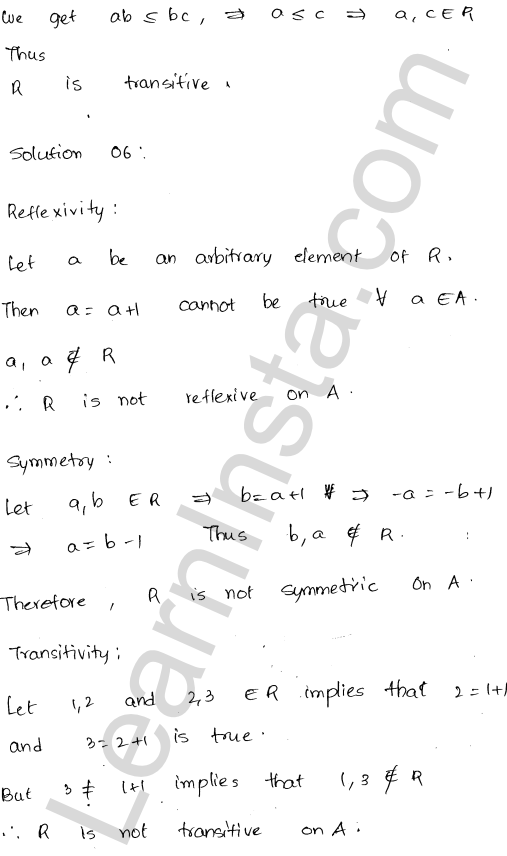 We get ab ≤ bc, ⇒ a ≤ c ⇒ a, c ∈ R
Thus
R is transitive.
Solution 06:
Reflexivity:
Let a be an arbitrary element of R.
Then a = a+1 cannot be true ∀ a ∈ A.
a, a ∉ R
∴ R is not reflexive on A.
Symmetry:
Let a, b ∈ R ⇒ b = a+1 ⇒ -a = -b+1
⇒ a = b-1 Thus b, a ∉ R.
Therefore, R is not symmetric on A.
Transitivity:
Let 1,2 and 2,3 ∈ R implies that 2 = 1+1
and 3 = 2+1 is true.
But 3 ≠ 1+1 implies that 1, 3 ∉ R
∴ R is not transitive on A.
LearnInsta.com